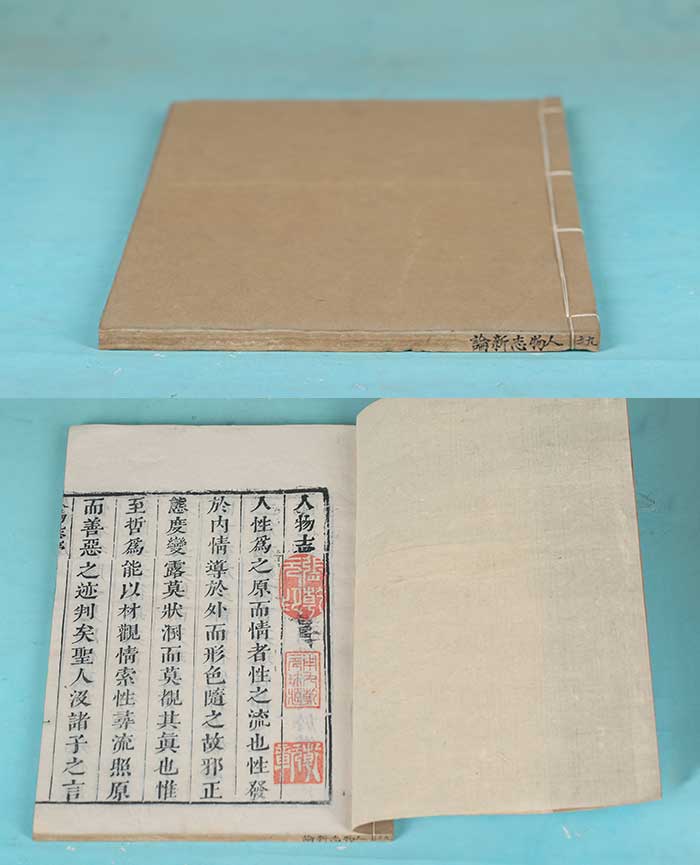 人物志新論
人物志
人性爲之原而情者性之流也性發
於内情導於外而形色隨之故邪正
態度變露莫狀溷而莫覩其眞也惟
至哲爲能以材觀情索性尋流照原
而善惡之迹判矣聖人没諸子之言
人物志新論